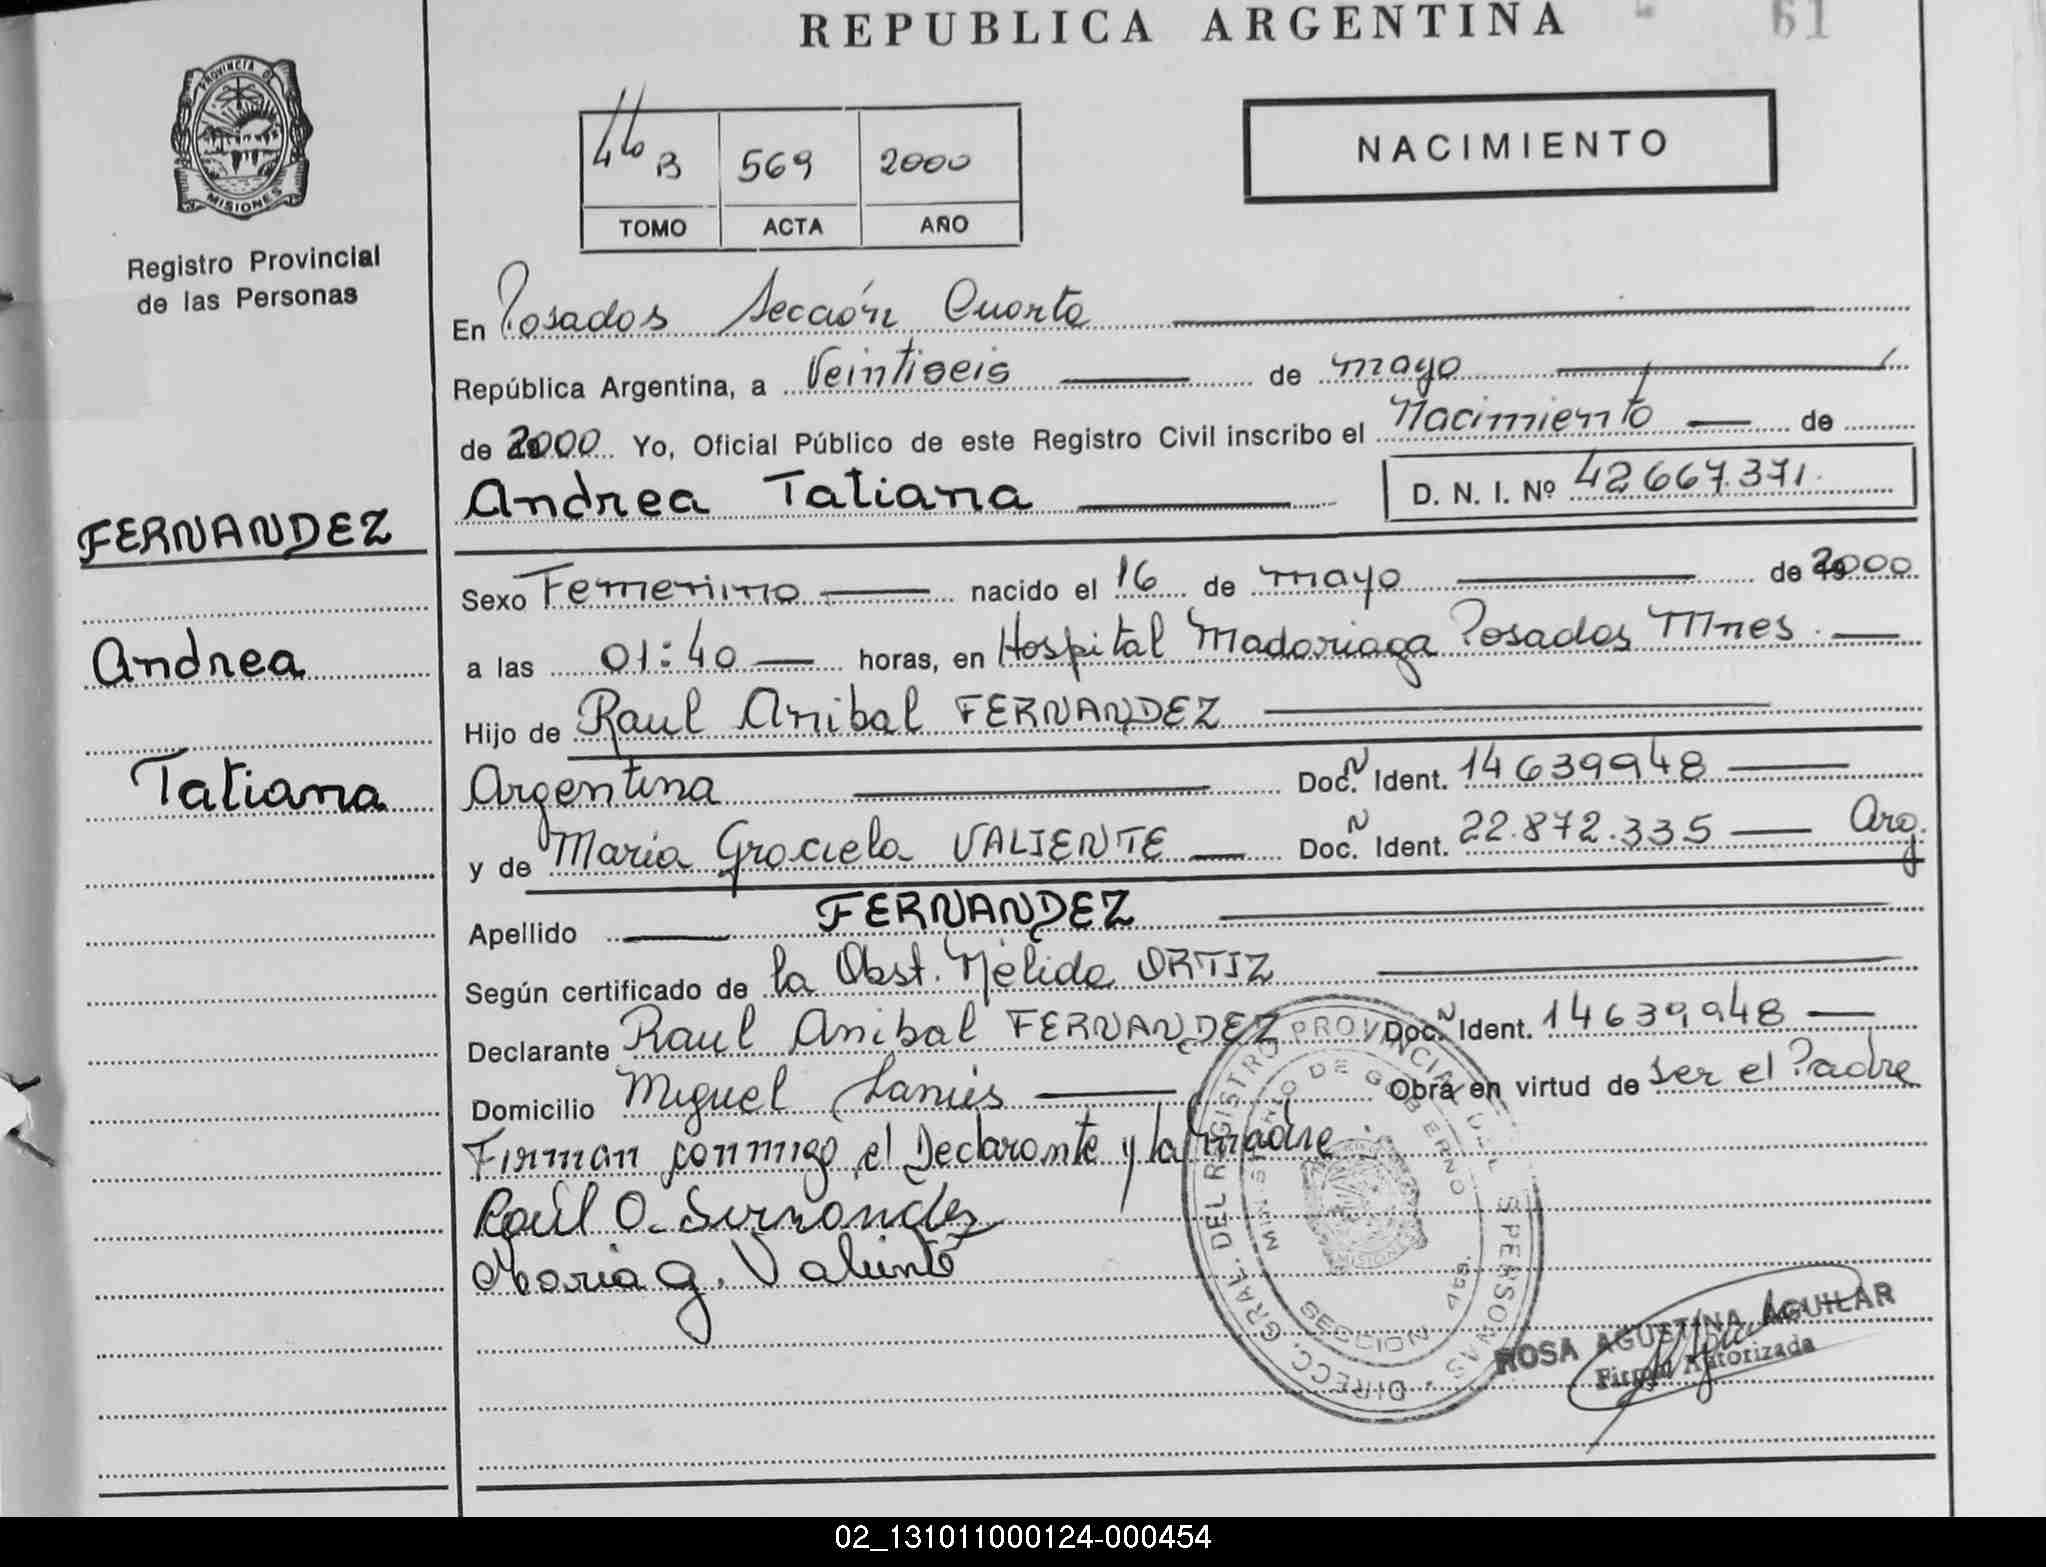 REPUBLICA ARGENTINA
61
PROVINCIA DE
MISIONES
Registro Provincial
de las Personas
FERNANDEZ
Andrea
Tatiana
B 569 2000
TOMO ACTA AÑO
NACIMIENTO
En Posadas Sección Cuarta
República Argentina, a Veintiseis de mayo
de 2000 Yo, Oficial Público de este Registro Civil inscribo el Nacimiento de
Andrea Tatiana D. N. I. Nº 42667.371.
Sexo Femenino nacido el 16 de mayo de 2000
a las 01:40 horas, en Hospital Madariaga Posadas Mnes.
Hijo de Raul Anibal FERNANDEZ
Argentina Doc. N Ident. 14639948
y de Maria Graciela VALIENTE Doc. N Ident. 22.872.335 Arg.
Apellido FERNANDEZ
Según certificado de la Obst. Nélida ORTIZ
Declarante Raul Anibal FERNANDEZ Doc. N Ident. 14639948
Domicilio Miguel Lanús Obra en virtud de ser el Padre
Firman conmigo el Declarante y la madre.
Raúl A. Fernandez
Maria G. Valiente
DIRECC. GRAL. DEL REGISTRO PROVINCIAL DE LAS PERSONAS
MINISTERIO DE GOBIERNO
MISIONES
ROSA AGUSTINA AGUILAR
Firma Autorizada
02_131011000124-000454